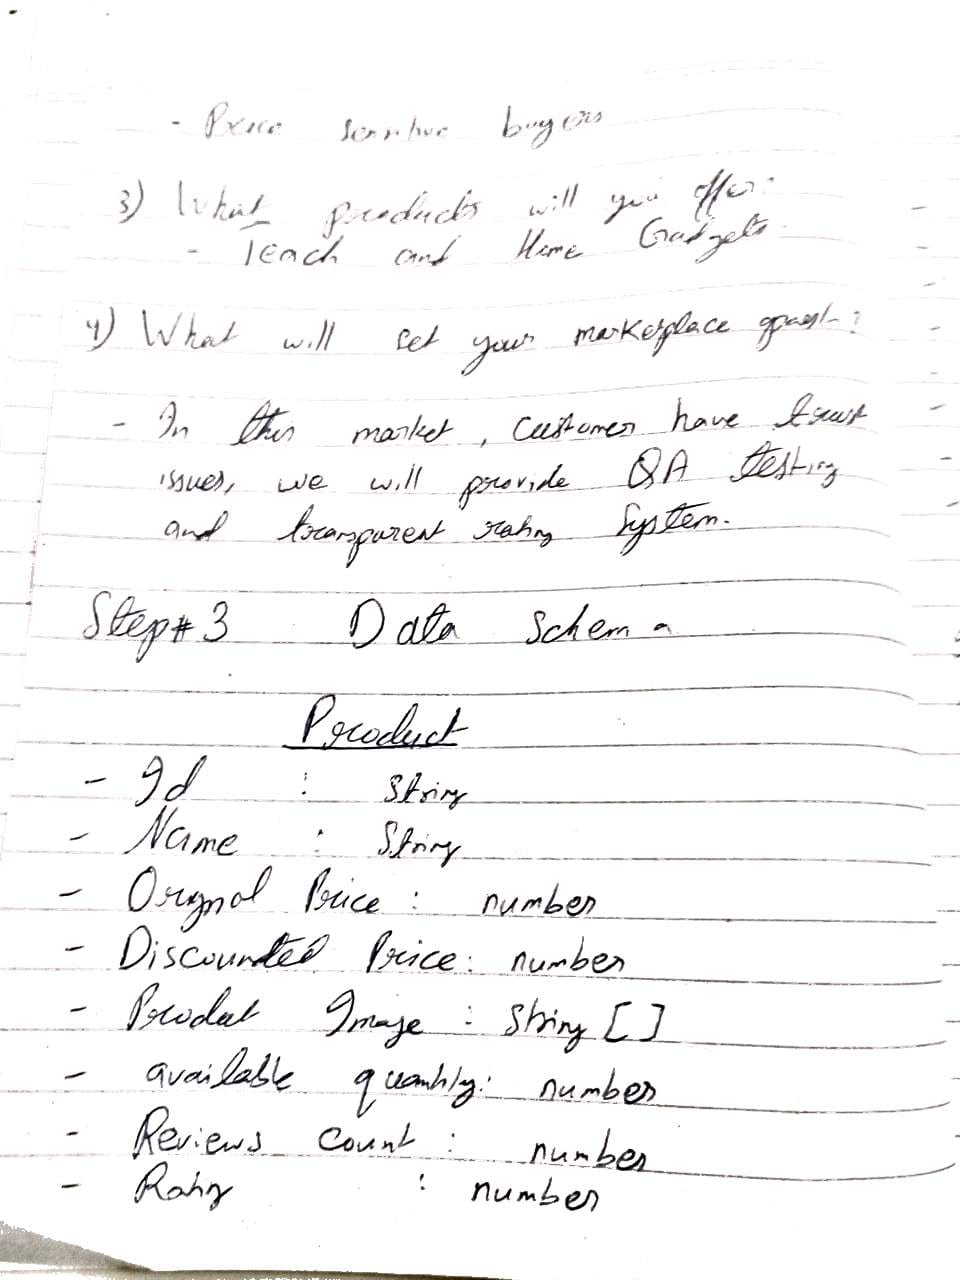 - Price sensitive buyers
3) What products will you offer?
- Teach and Home Gadgets.
4) What will set your marketplace apart?
- In this market, customer have trust
issues, we will provide QA testing
and transparent rating System.
Step# 3 Data Schema
Product
- Id : String
- Name : String
- Orignal Price : number
- Discounted Price : number
- Product Image : String []
- available quantity : number
- Reviews Count : number
- Rating : number